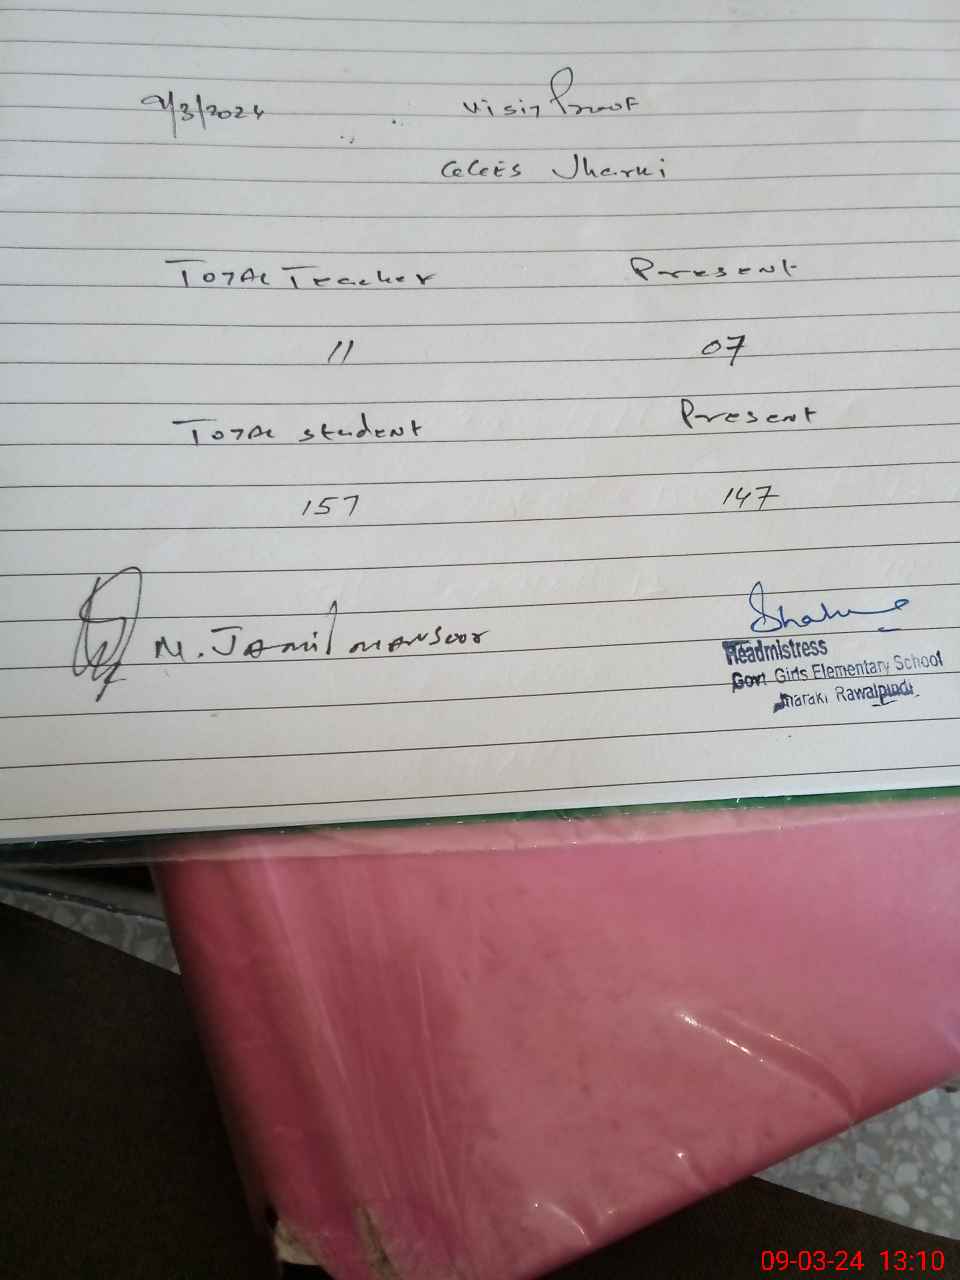 9/3/2024 Visit Proof
GGEES Jharki
Total Teacher Present
11 07
Total student Present
157 147
M. Jamil Mansoor
Headmistress
Govt Girls Elementary School
Jharaki Rawalpindi
09-03-24 13:10